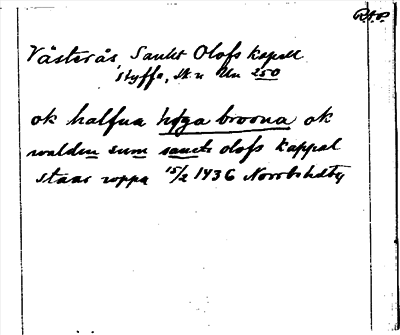 RA.P.
Västerås, Sankt Olofs kapell
Styffe, Sk. u Un 250
ok halfua høga broona ok
walden sum sancte olofs kappal
staar uppa 15/2 1436